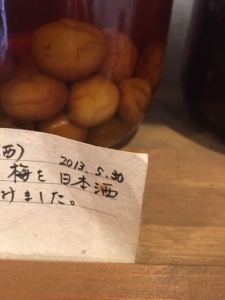 酒) 2013.5.30
梅を日本酒
みました。